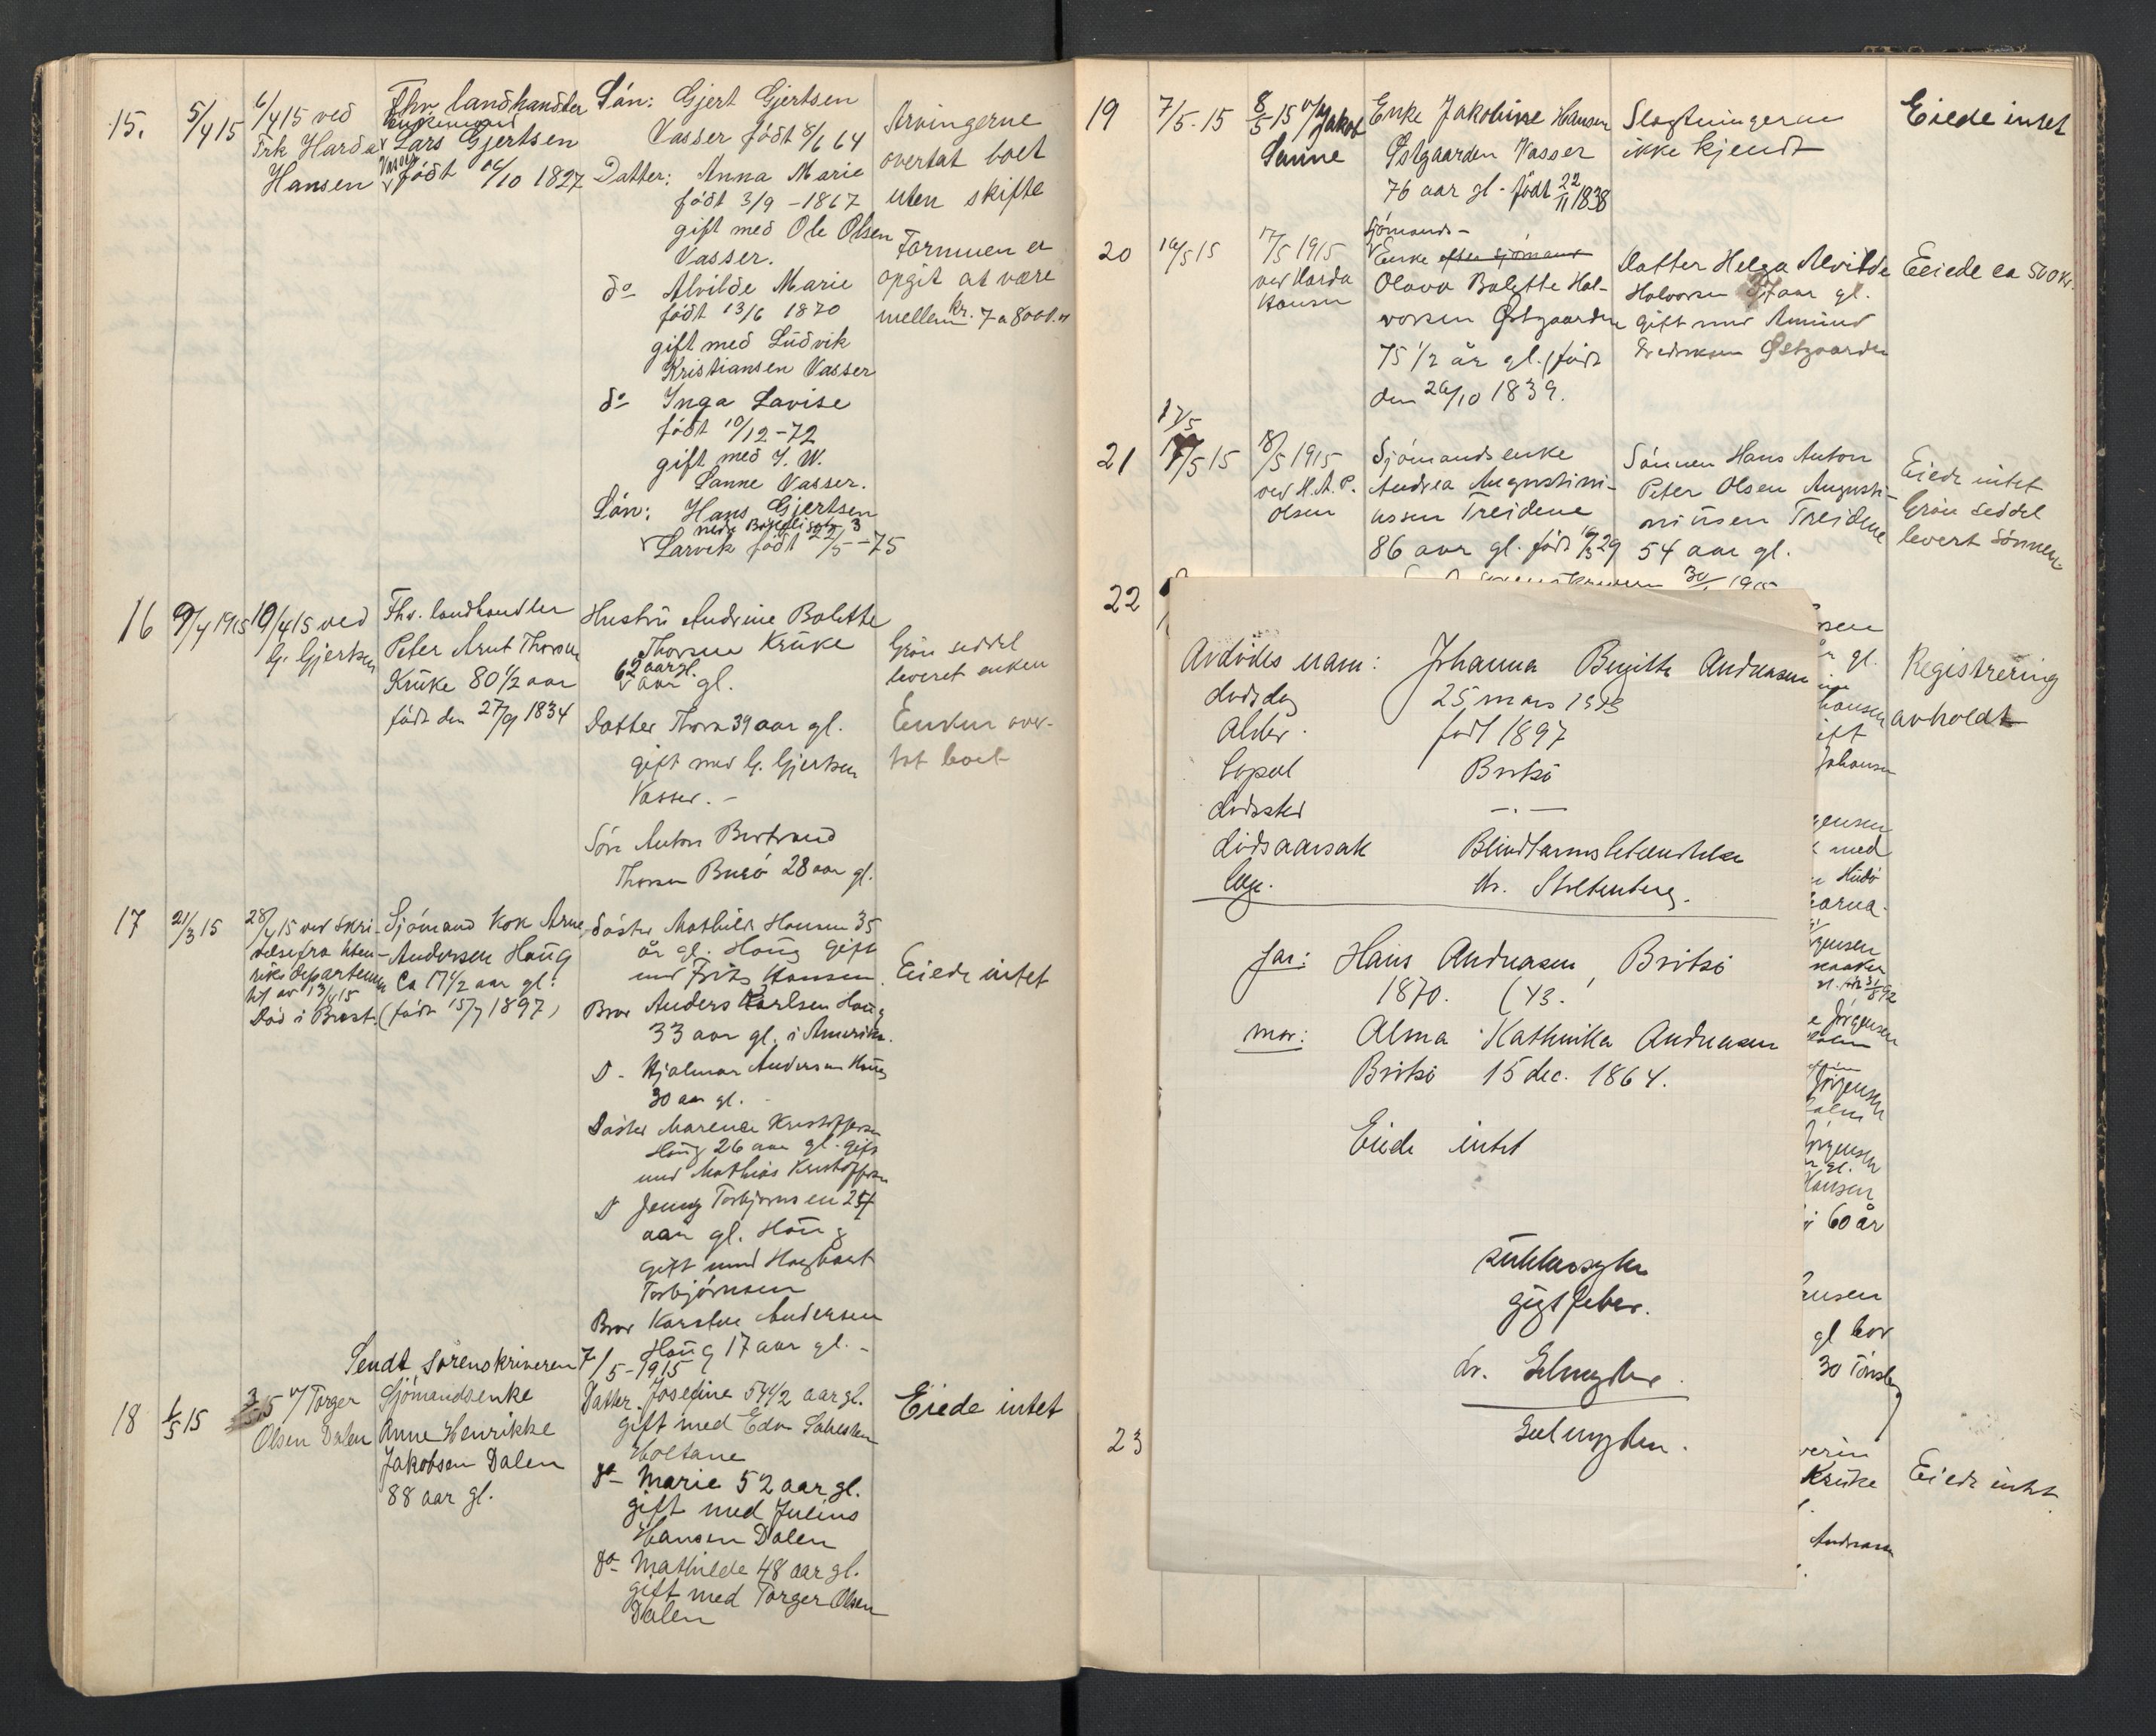 15.
5/4 15
6/4 15 ved
Frk Harda
Hansen
Fhv landhandler
Enkemand
Lars Gjertsen
Vasser født 16/10 1827
Sön: Gjert Gjertsen
Vasser født 8/6 64
Datter: Anna Marie
født 3/9 - 1867
gift med Ole Olsen
Vasser.
do Alvilde Marie
født 13/6 1870
gift med Ludvik
Kristiansen Vasser
do Inga Lovise
født 10/12 - 72
gift med J. W.
Sanne Vasser.
Sön: Hans Gjertsen
Larvik født 22/5 - 75
Arvingerne
overtat boet
uten skifte
Formuen er
opgit at være
mellem kr. 7 a 8000.
16
9/4 1915
10/4 15 ved
G. Gjertsen
Fhv. landhandler
Peter Arnt Thorsen
Krüke 80 1/2 aar
født den 27/9 1834
Hustrü Andrine Bolette
Thorsen Krüke
62 aar gl.
aar gl.
Datter Thora 39 aar gl.
gift med G. Gjertsen
Vasser. -
Sön Anton Bertrand
Thorsen Buerö 28 aar gl.
Grön seddel
leveret enken
Enken over-
tat boet
17
21/3 15
28/4 15 ved skri-
velse fra uten-
riksdepartemen
tet av 13/4 15
Död i Brest.
Sjömand kok Arne
Andersen Haüg
Ca 17 1/2 aar gl.
(født 15/7 1897)
Söster Mathilde Hansen 35
år gl. Haüg gift
med Fritz Hansen.
Bror Anders Karlsen Haüg
33 aar gl. i Amerika.
D- Hjalmar Andersen Haüg
30 aar gl. -
Söster Marence Kristoffersen
Haüg 26 aar gl. gift
med Mathias Kristoffersen
D Jenny Torbjørnsen 24
aar gl. Haüg
gift med Hagbart
Torbjørnsen
Bror Karsten Andersen
Haüg 17 aar gl. -
Eiede intet
Sendt Sørenskriveren 7/5 - 1915
18
1/5 15
3/5 v/ Torger
Olsen Dalen
Sjömandsenke
Anne Henrikke
Jakobsen Dalen
88 aar gl.
Datter. Josefine 54 1/2 aar gl.
gift med Edv.
Holtane
do - Marie 52 aar gl.
gift med Julius
Hansen Dalen
do - Mathilde 48 aar gl.
gift med Torger Olsen
Dalen
Eiede intet
19
7/5. 15
8/5 15 v/ Jakob
Sanne
Enke Jakobine Hansen
Østgaarden Vasser
76 aar gl. født 22/11 1838
Slegtningerne
ikke kjendt
Eiede intet
20
16/5 15
17/5 1915
ved Harda
Hansen
Sjömands-
Enke efter sjømand
Olava Bolette Hal-
vorsen Østgaarden
75 1/2 år gl. (født
den 26/10 1839.
Datter Helga Alvilde
Halvorsen aar gl.
gift med Amund
Fredriksen Østgaarden
Eiede ca 500 kr.
17/5
21
17/5 15
18/5 1915
ved H. A. P.
Olsen
Sjömandsenke
Andrea Augustini-
ussen Treidene
86 aar gl. født 16/3 29
Sönnen Hans Anton
Peter Olsen Augusti-
niüsen Treidene
54 aar gl.
Eiede intet
Grön seddel
levert Sönnen
22
Registrering
avholdt
Avdödes navn: Johanna Birgitte Andreasen
dödsdag 25 mars 1913
Alder. født 1897
bopæl Brötsö
dödssted - . -
dödsaarsak Blindtarmsbetændelse
læge. dr. Stoltenberg.
far: Hans Andreasen, Brötsö
1870. (43.
mor: Alma Kathinka Andreasen
Brötsö 15 dec. 1864.
Eiede intet
gigtfeber.
dr.
nsen
gl.
hansen
ift
Johansen
gensen
med
Hudö
gensen
Jörgensen
Jörgensen
Jörgensen
gl.
Hansen
60 år
ansen
gl bor
30 Tönsberg
23
verin
Krüke
Andreasen
Eiede intet